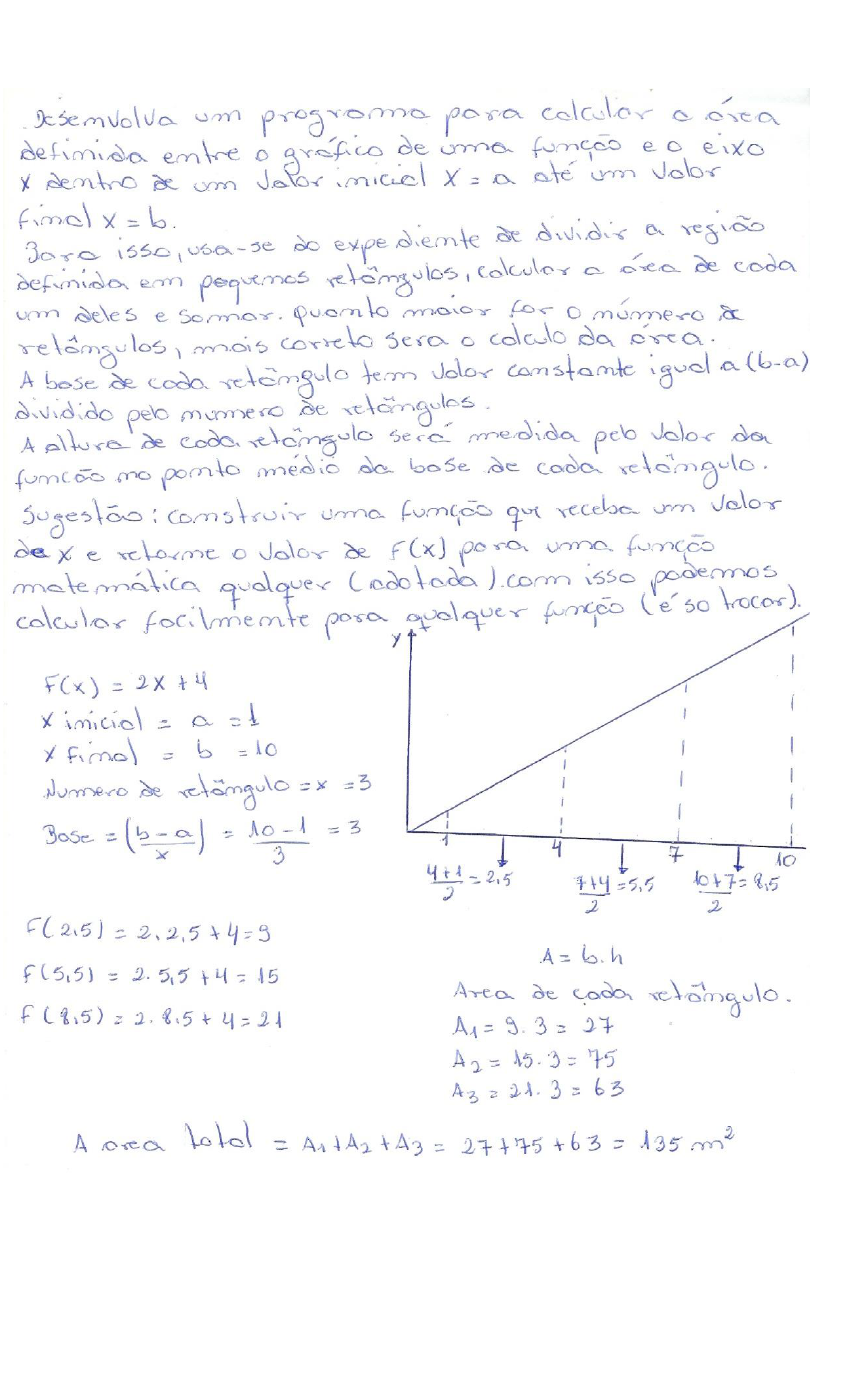 Desenvolva um programa para calcular a área
definida entre o gráfico de uma função e o eixo
x dentro de um valor inicial x = a até um valor
final x = b.
Para isso, usa-se do expediente de dividir a região
definida em pequenos retângulos, calcular a área de cada
um deles e somar. quanto maior for o número de
retângulos, mais correto sera o calculo da área.
A base de cada retângulo tem valor constante igual a (b-a)
dividido pelo numero de retângulos.
A altura de cada retângulo será medida pelo valor da
funcão no ponto médio da base de cada retângulo.
Sugestão: construir uma função que receba um valor
de x e retorne o valor de f(x) para uma função
matemática qualquer (adotada). com isso podemos
calcular facilmente para qualquer função (é so trocar).
y
F(x) = 2x + 4
x inicial = a = 1
x final = b = 10
Numero de retângulo = x = 3
Base = (b-a/x) = 10-1/3 = 3
1 4 7 10
4+1/2 = 2,5 7+4/2 = 5,5 10+7/2 = 8,5
F(2,5) = 2.2,5 + 4 = 9
F(5,5) = 2.5,5 + 4 = 15
F(8,5) = 2.8,5 + 4 = 21
A = b.h
Area de cada retângulo.
A1 = 9.3 = 27
A2 = 15.3 = 75
A3 = 21.3 = 63
A area total = A1+A2+A3 = 27+75+63 = 135 m²